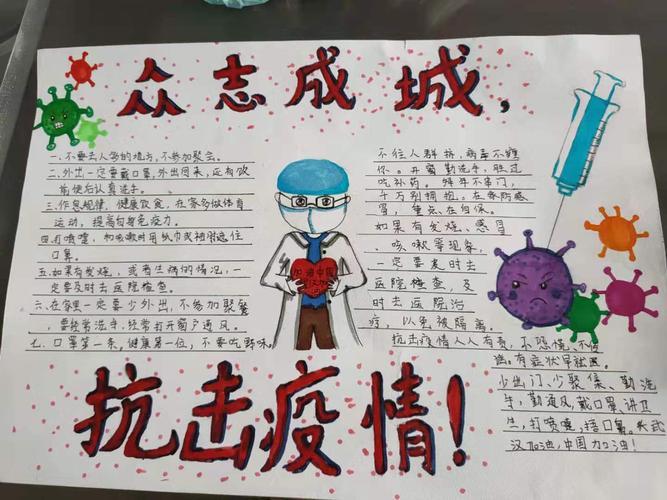 众志成城，
一.不要去人多的地方,不参加聚会。
二.外出一定要戴口罩,外出回来,还有饭
前便后认真洗手。
三.作息规律,健康饮食,在家多做体育
运动,提高自身免疫力。
四.打喷嚏,和咳嗽时用纸巾或袖遮住
口鼻。
五.如果有发烧,或者生病的情况,一
定要及时去医院检查。
六.在家里一定要少外出,不参加聚餐,
要经常洗手,经常打开窗户通风。
七.口罩第一条,健康第一位,不要吃野味。
加油中国
武汉加油
不往人群挤,病毒不睬
你。开窗勤洗手,胜过
吃补药。鼠年不串门,
千万别拥抱。在家防感
冒,重点在自保。
如果有发烧、感冒
、咳嗽等现象,
一定要及时去
医院检查,及
时去医院治
疗,以免被隔离。
抗击疫情人人有责,不恐慌不信
谣。有症状早就医。
少出门,少聚集、勤洗
手,勤通风,戴口罩讲卫
生,打喷嚏,捂口鼻。
汉加油,中国加油!
抗击疫情!